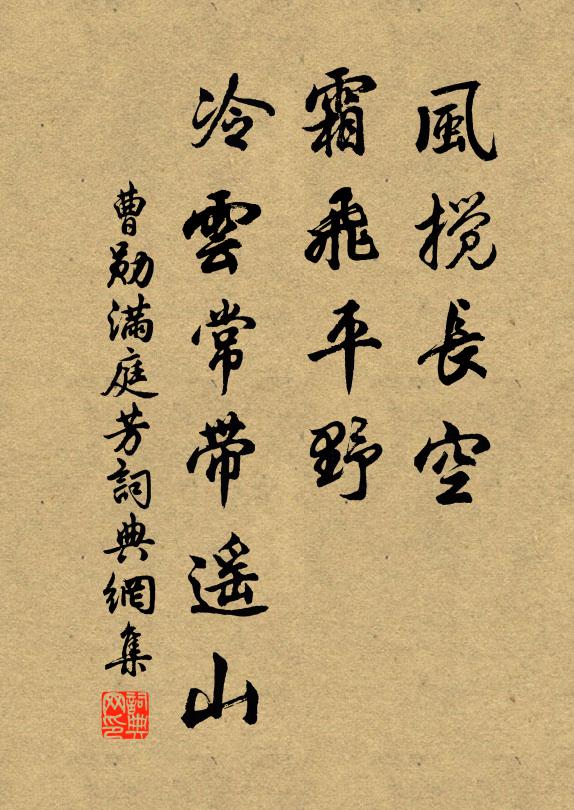 風攪長空
霜飛平野
冷雲常帶遥山
曹勛滿庭芳詞典網集
詞典网印